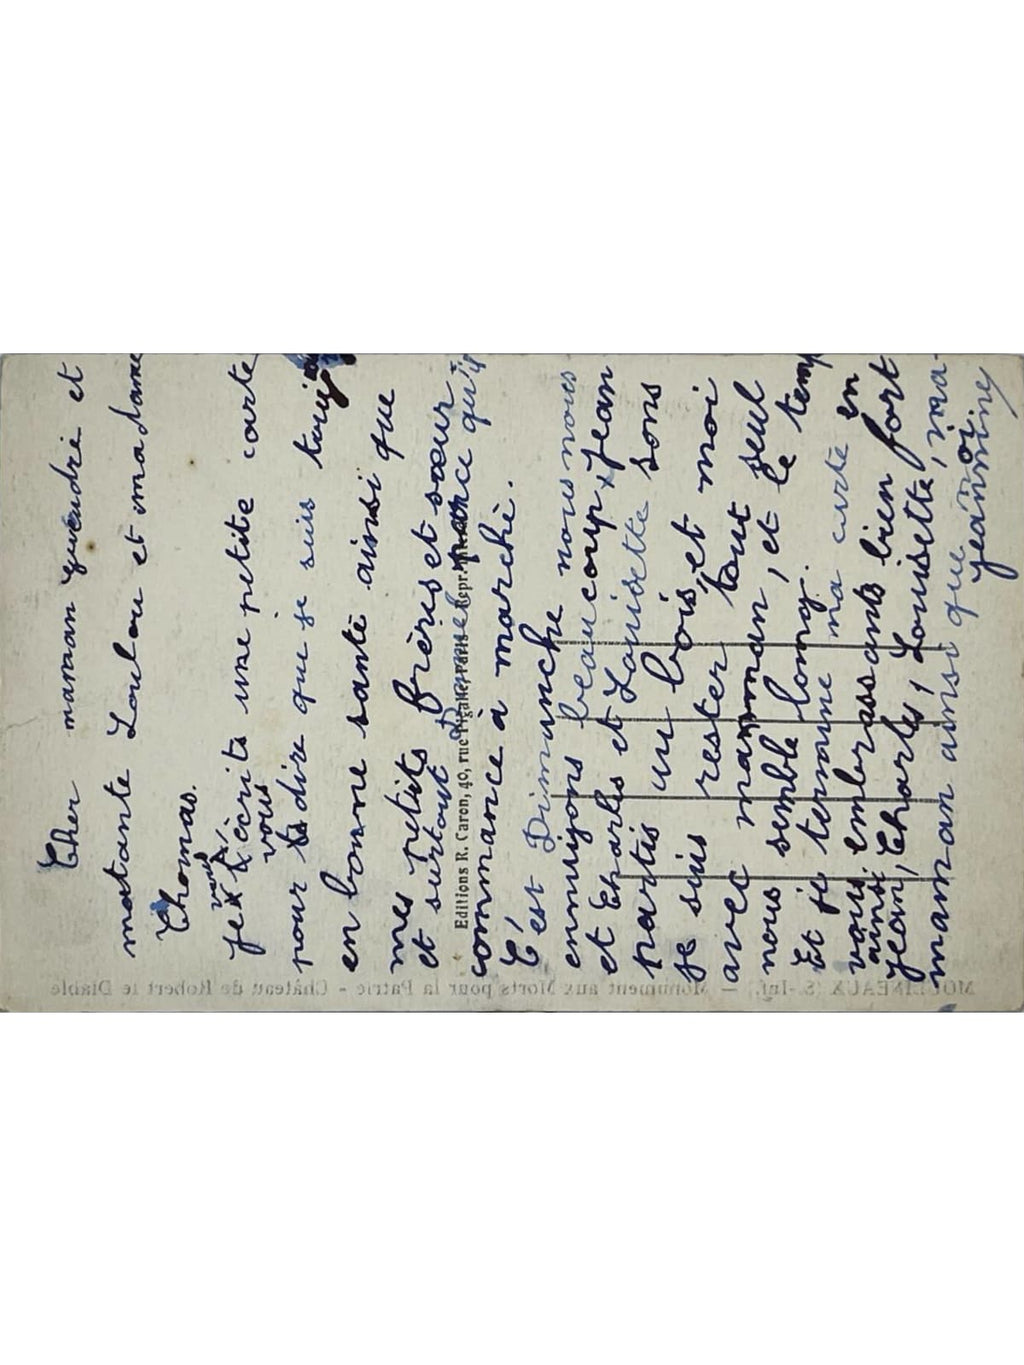 Cher maman Gueudré et
matante Loulou et madame
Thomas.
vous
Je t'écrits une petite carte
vous
pour te dire que je suis touj
en bonne santé ainsi que
mes petits frères et sœur
et surtout parce qu'il
commance à marché.
C'est Dimanche nous nous
ennuiyons beaucoup, Jean
et Charles et Louisette sons
partis au bois, et moi
je suis rester tout seul
avec manman, et le temp
nous semble long.
Et je termine ma carte en
vous embrassants bien fort
ainsi
Jean, Charles, Louisette, ma-
maman ainsi que moi
Jeannine
Editions R. Caron, 40, rue Pigalle, Paris - Repr.
MOULINEAUX (S.-Inf.) — Monument aux Morts pour la Patrie - Château de Robert le Diable